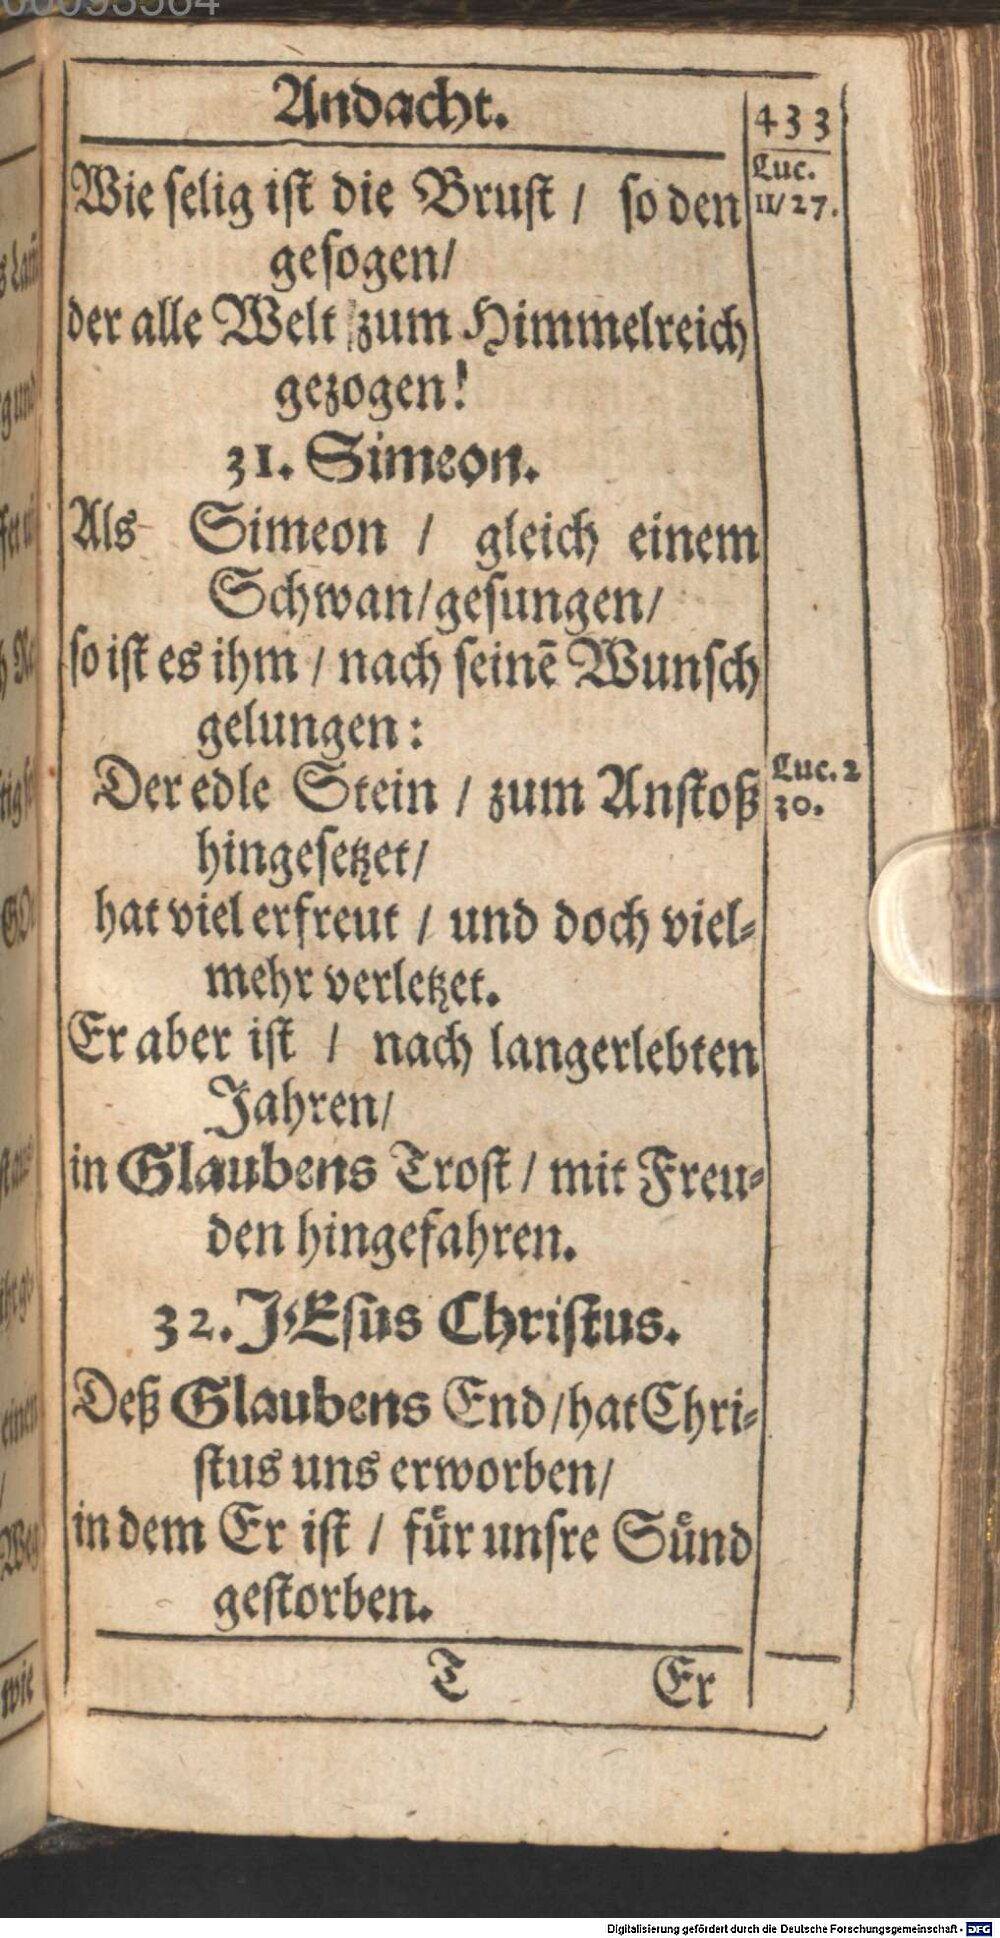 Andacht.
433
Wie selig ist die Brust / so den
Luc.
11/27.
gesogen/
der alle Welt zum Himmelreich
gezogen!
31. Simeon.
Als Simeon / gleich einem
Schwan/gesungen/
so ist es ihm / nach seinē Wunsch
gelungen:
Der edle Stein / zum Anstoß
Luc. 2
30.
hingesetzet/
hat viel erfreut / und doch viel-
mehr verletzet.
Er aber ist / nach langerlebten
Jahren/
in Glaubens Trost / mit Freu-
den hingefahren.
32. JEsus Christus.
Deß Glaubens End/hat Chri-
stus uns erworben/
in dem Er ist / für unsre Sünd
gestorben.
T Er
wie
Digitalisierung gefördert durch die Deutsche Forschungsgemeinschaft - DFG